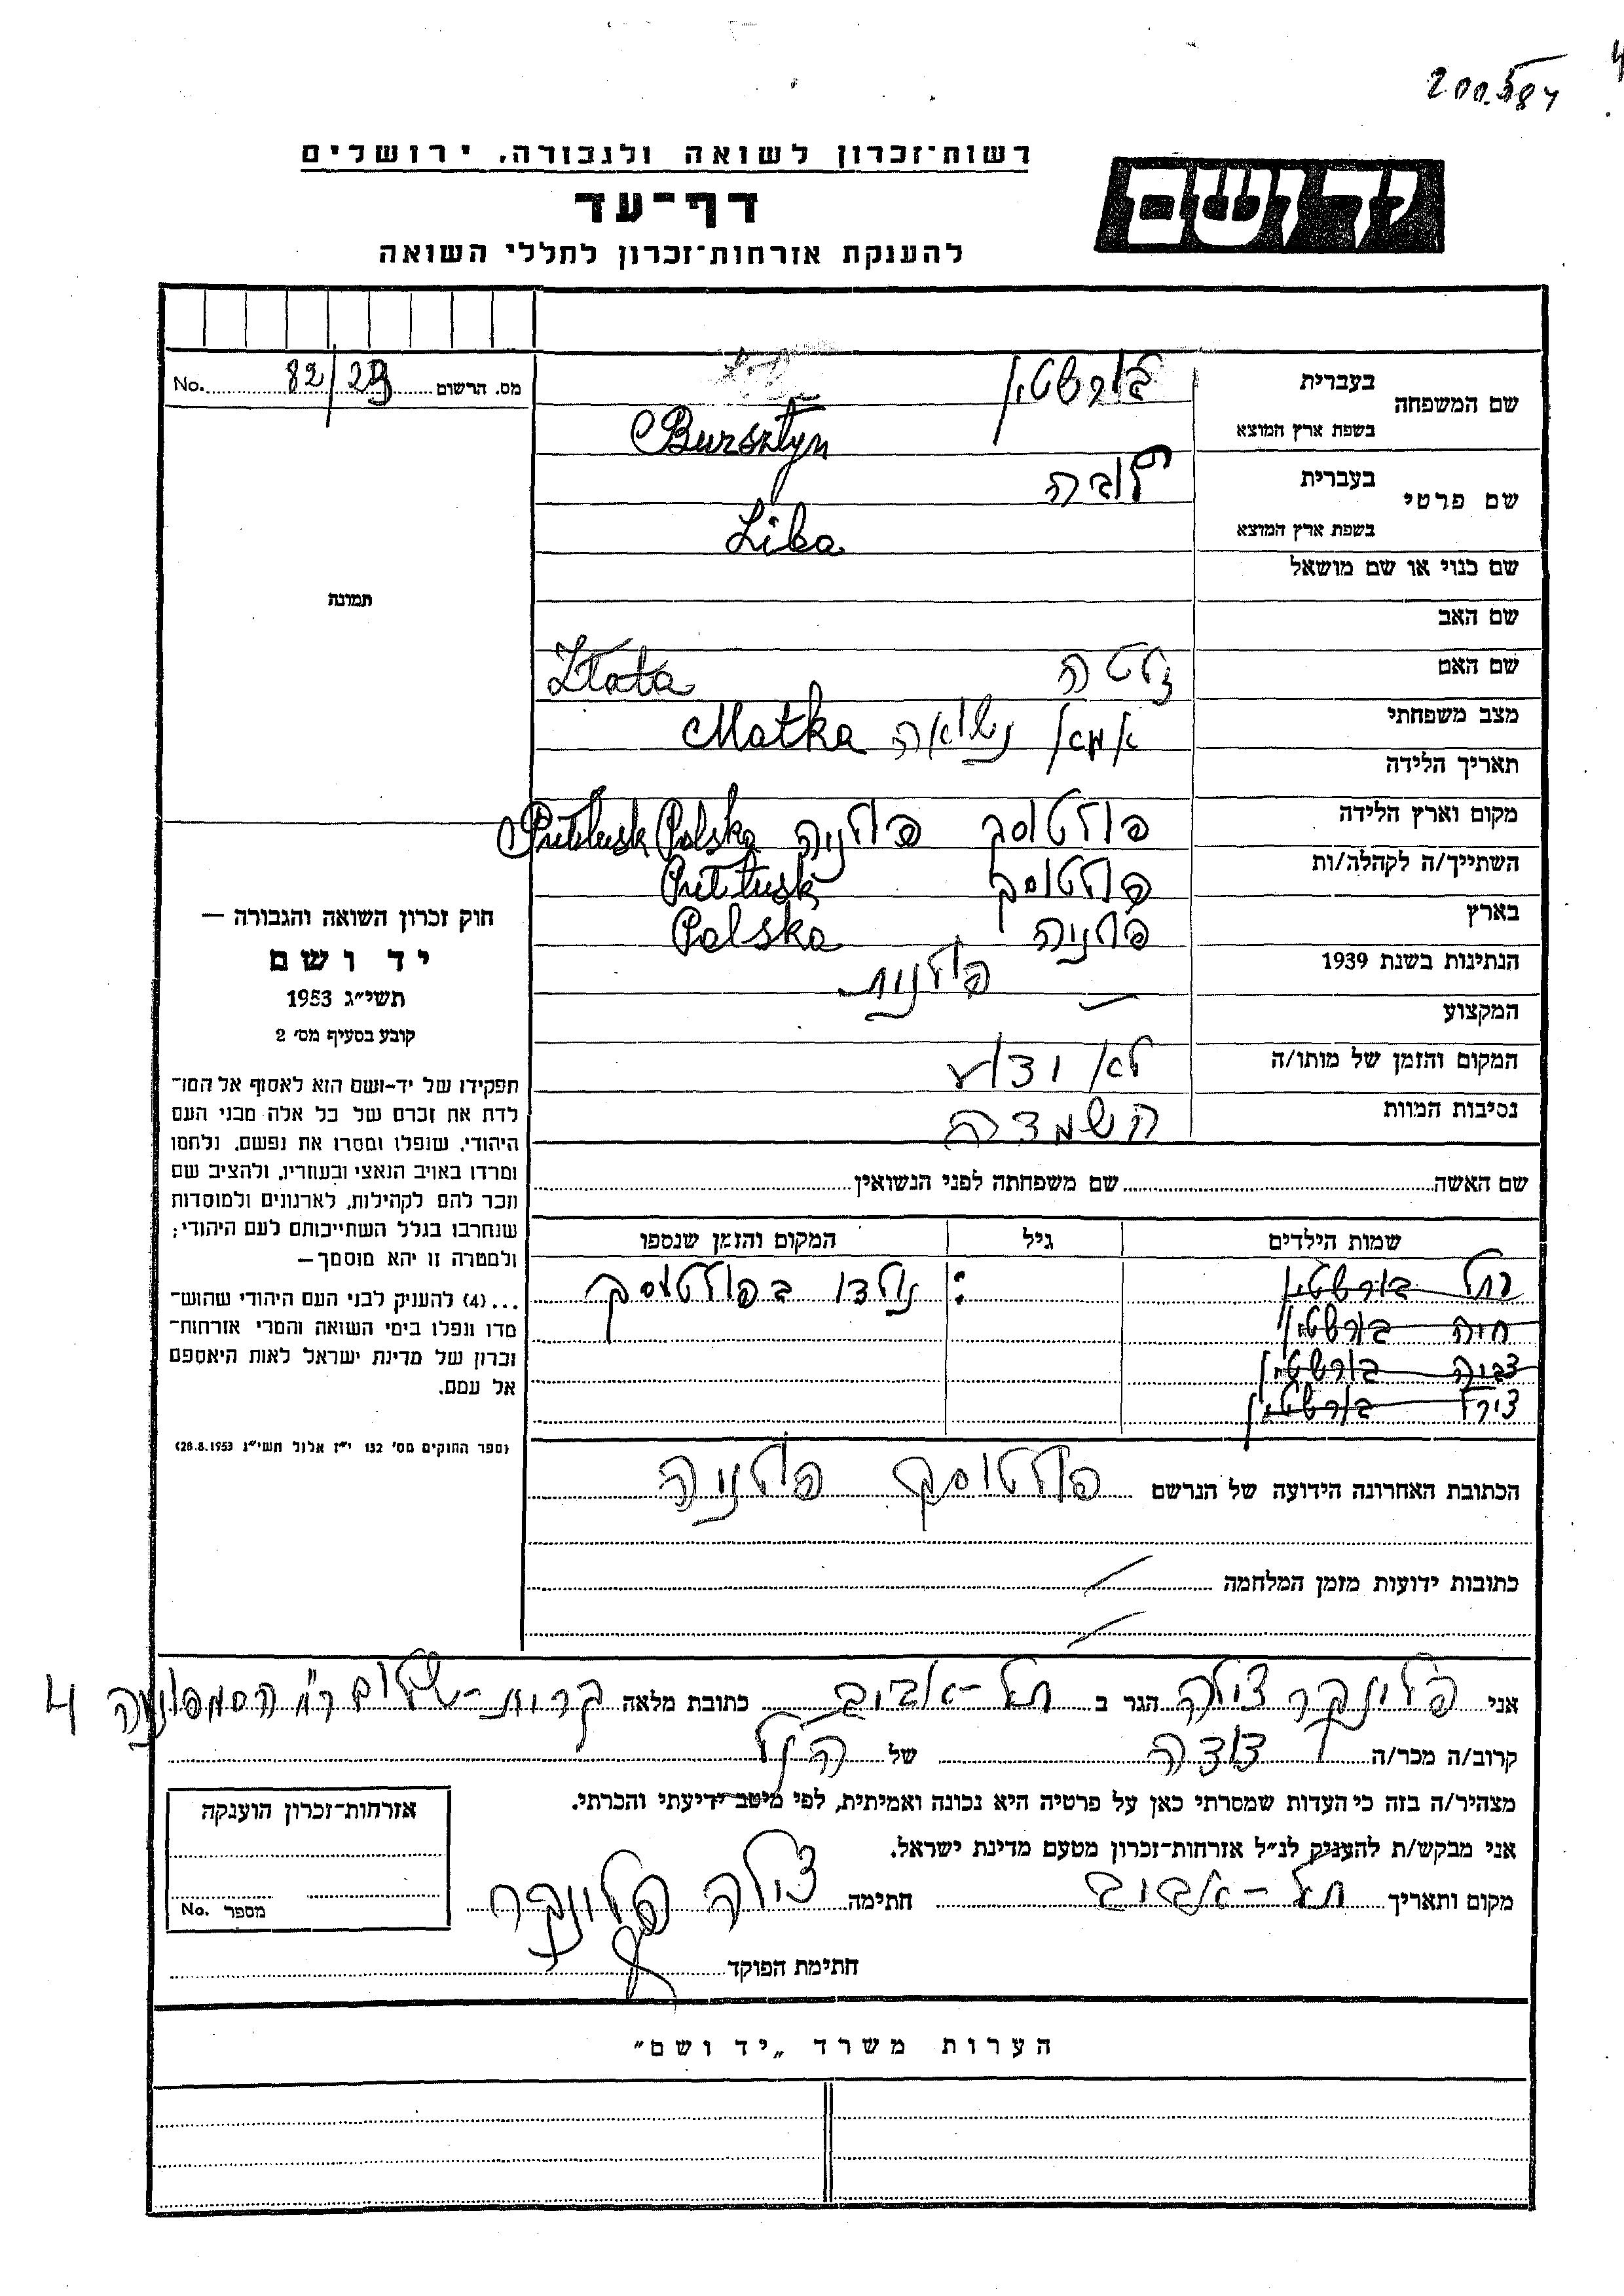 200.584
4
רשות־זכרון לשואה ולגבורה, ירושלים
ידושם
דף־עד
להענקת אזרחות־זכרון לחללי השואה
No. 82/29 מס. הרשום
שם המשפחה
בעברית בורשטין
בשפת ארץ המוצא Bursztyn
שם פרטי
בעברית לובה
בשפת ארץ המוצא Liba
שם כנוי או שם מושאל
שם האב
שם האם זלטה Złata
מצב משפחתי אמא נשואה Matka
תאריך הלידה
מקום וארץ הלידה פולטוסק פולניה Putłusk Polska
השתייך/ה לקהלה/ות פולטוסק Putłusk
בארץ פולניה Polska
הנתינות בשנת 1939 פולנית
המקצוע —
המקום והזמן של מותו/ה לא ידוע
נסיבות המוות השמדה
שם האשה שם משפחתה לפני הנשואין
שמות הילדים גיל המקום והזמן שנספו
רחל בורשטין : נולדו בפולטוסק
חיה בורשטין
צביה בורשטין
צירל בורשטין
הכתובת האחרונה הידועה של הנרשם פולטוסק פולניה
כתובות ידועות מזמן המלחמה
תמונה
חוק זכרון השואה והגבורה —
יד ושם
תשי״ג 1953
קובע בסעיף מס׳ 2
תפקידו של יד-ושם הוא לאסוף אל המו־
לדת את זכרם של כל אלה מבני העם
היהודי, שנפלו ומסרו את נפשם, נלחמו
ומרדו באויב הנאצי ובעוזריו, ולהציב שם
וזכר להם לקהילות, לארגונים ולמוסדות
שנחרבו בגלל השתייכותם לעם היהודי;
ולמטרה זו יהא מוסמך—
...(4) להענית לבני העם היהודי שהוש־
מדו ונפלו בימי השואה והמרי אזרחות־
זכרון של מדינת ישראל לאות היאספם
אל עמם.
(ספר החוקים מס׳ 132 י״ז אלול תשי״ג 28.8.1953)
אני פלונקר צילה הגר ב תל-אביב כתובת מלאה קרית-שלום רח הסמפוניה 4
קרוב/ה מכר/ה דודה של הנ״ל
מצהיר/ה בזה כי העדות שמסרתי כאן על פרטיה היא נכונה ואמיתית, לפי מיטב ידיעתי והכרתי.
אני מבקש/ת להעניק לנ״ל אזרחות־זכרון מטעם מדינת ישראל.
מקום ותאריך תל-אביב חתימה צילה פלונקר
חתימת הפוקד
אזרחות־זכרון הוענקה
מספר No.
הערות משרד „יד ושם״